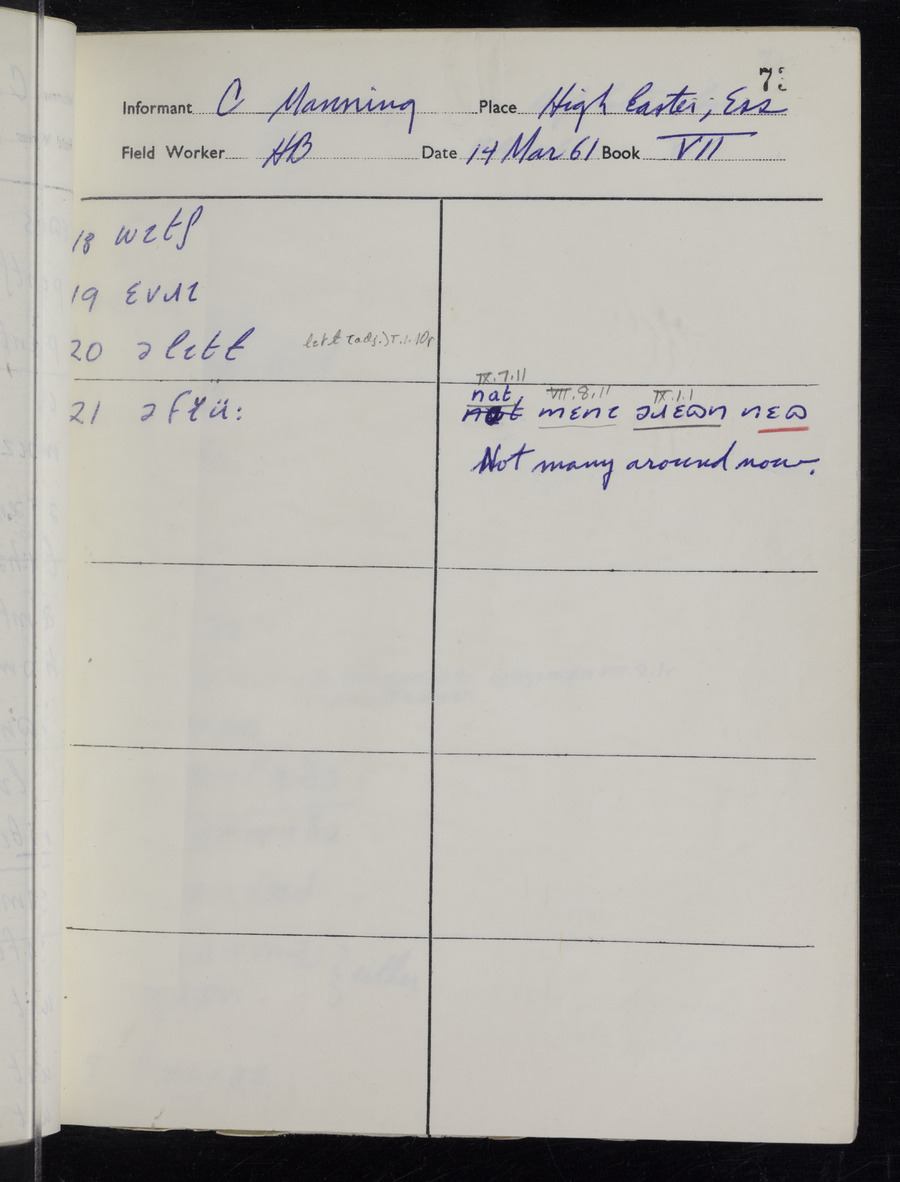 73
Informant C Manning Place High Easter, Ess
Field Worker HB Date 14 Mar 61 Book VII
18 wɪtʃ
19 ɛvɹɪ
20 ə lɪtt
lɪtt (adj.) V.1.10
21 ə fɪ̈ü:
IX.7.11 VII.8.11 IX.1.1
nat,
mɛnɪ əɹɛʊn nɛʊ
Not many around now.